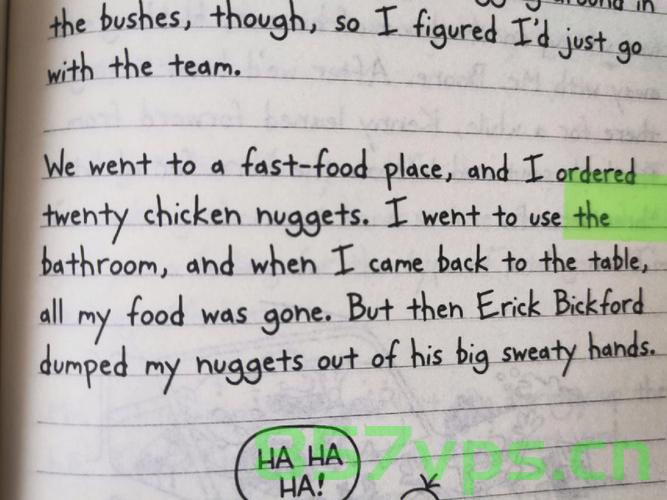 around in
the bushes, though, so I figured I'd just go
with the team.
We went to a fast-food place, and I ordered
twenty chicken nuggets. I went to use the
bathroom, and when I came back to the table,
all my food was gone. But then Erick Bickford
dumped my nuggets out of his big sweaty hands.
HA HA
HA!
857vps.cn